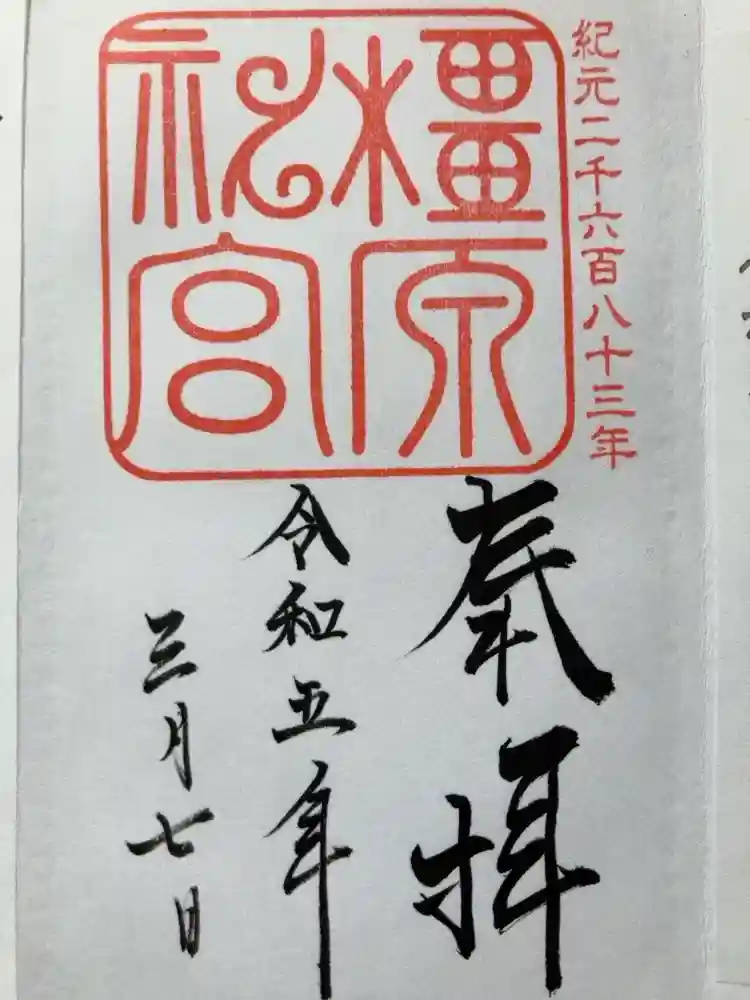 紀元二千六百八十三年
橿原
神宮
奉拝
令和五年
三月七日